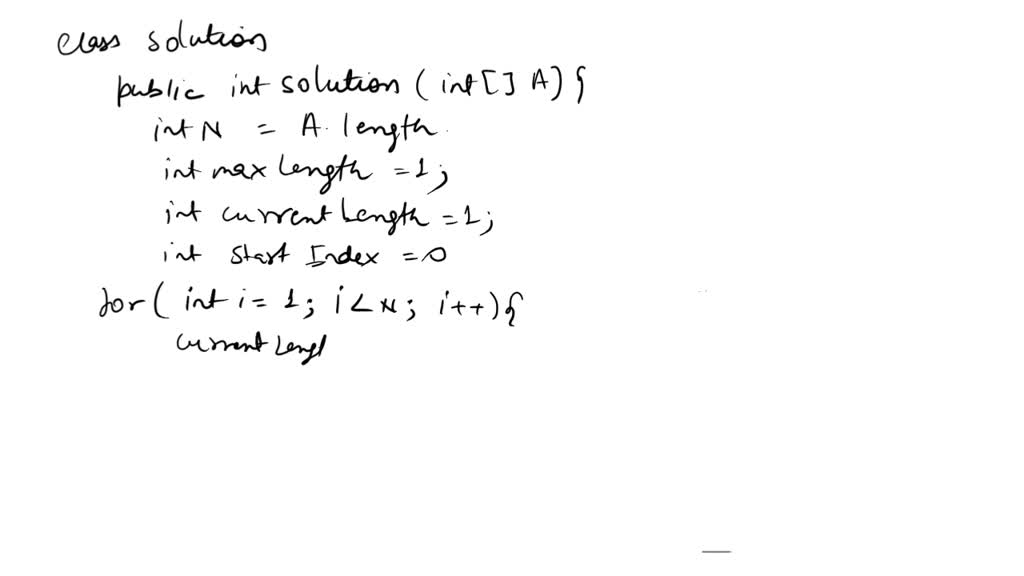 class solution
public int solution (int [] A) {
int N = A. length
int max length = 1;
int current Length = 1;
int start Index = 0
for ( int i = 1; i < N; i++) {
current Lengt